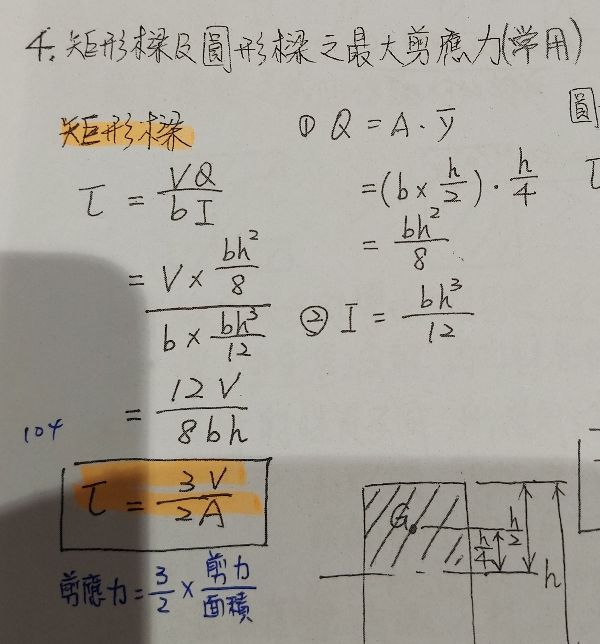 4. 矩形樑及圓形樑之最大剪應力(常用)
矩形樑
τ = VQ / bI
= V × bh²/8 / b × bh³/12
= 12V / 8bh
104
τ = 3V / 2A
剪應力 = 3/2 × 剪力/面積
① Q = A · ȳ
= (b × h/2) · h/4
= bh²/8
② I = bh³/12
圓
τ
G
h/4
h/2
h